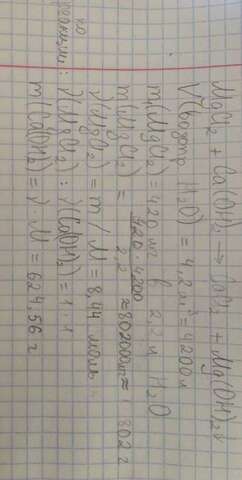 MgCl2 + Ca(OH)2 → CaCl2 + Mg(OH)2↓
V(водопр H2O) = 4,2 м³ = 4200 л
m(MgCl2) = 420 мг в 2,2 л H2O
m(MgCl2) = 420 · 4200 / 2,2 ≈ 802000 мг ≈ 802 г
ν(MgCl2) = m / M = 8,44 моль
по
реакции: ν(MgCl2) : ν(Ca(OH)2) = 1 : 1
m(Ca(OH)2) = ν · M = 624,56 г